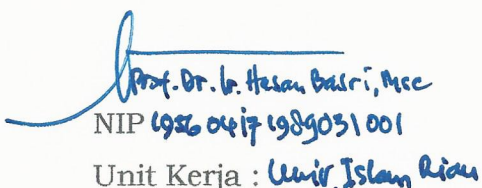 Prof. Dr. Ir. Hasan Basri, Msc
NIP 19560417 198903 1 001
Unit Kerja : Univ Islam Riau